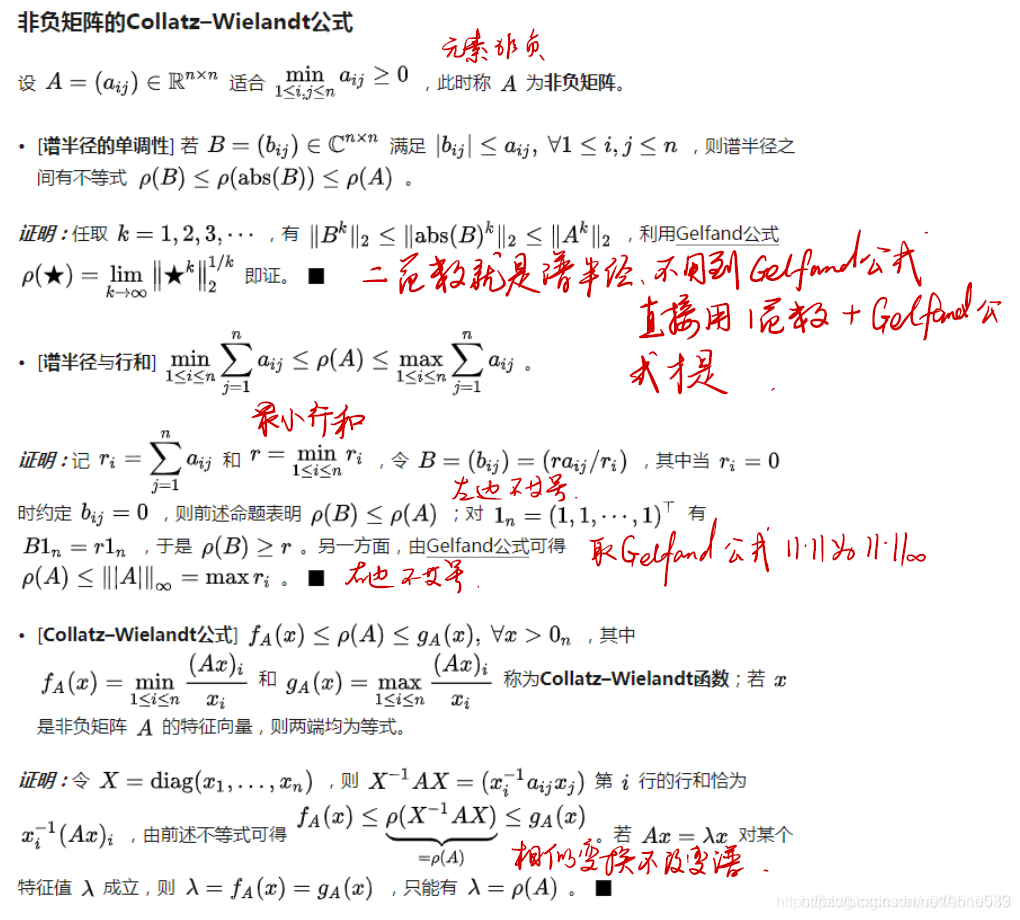 非负矩阵的Collatz–Wielandt公式
元素非负
设 A = (a_{ij}) ∈ ℝ^{n×n} 适合 min_{1≤i,j≤n} a_{ij} ≥ 0 ，此时称 A 为非负矩阵。
• [谱半径的单调性] 若 B = (b_{ij}) ∈ ℂ^{n×n} 满足 |b_{ij}| ≤ a_{ij}, ∀1 ≤ i, j ≤ n ，则谱半径之
间有不等式 ρ(B) ≤ ρ(abs(B)) ≤ ρ(A) 。
证明：任取 k = 1, 2, 3, ⋯ ，有 ‖B^k‖_2 ≤ ‖abs(B)^k‖_2 ≤ ‖A^k‖_2 ，利用Gelfand公式
ρ(★) = lim_{k→∞} ‖★^k‖_2^{1/k} 即证。 ■
二范数就是谱半径、不用到Gelfand公式
直接用1范数+Gelfand公
式才是.
• [谱半径与行和] min_{1≤i≤n} ∑_{j=1}^{n} a_{ij} ≤ ρ(A) ≤ max_{1≤i≤n} ∑_{j=1}^{n} a_{ij} 。
最小行和
证明：记 r_i = ∑_{j=1}^{n} a_{ij} 和 r = min_{1≤i≤n} r_i ，令 B = (b_{ij}) = (ra_{ij}/r_i) ，其中当 r_i = 0
左边不等号.
时约定 b_{ij} = 0 ，则前述命题表明 ρ(B) ≤ ρ(A) ；对 1_n = (1, 1, ⋯, 1)^⊤ 有
B1_n = r1_n ，于是 ρ(B) ≥ r 。另一方面，由Gelfand公式可得
取Gelfand公式 ‖·‖为‖·‖_∞
ρ(A) ≤ |||A|||_∞ = max r_i 。 ■
右边不等号.
• [Collatz–Wielandt公式] f_A(x) ≤ ρ(A) ≤ g_A(x), ∀x > 0_n ，其中
f_A(x) = min_{1≤i≤n} (Ax)_i/x_i 和 g_A(x) = max_{1≤i≤n} (Ax)_i/x_i 称为Collatz–Wielandt函数；若 x
是非负矩阵 A 的特征向量，则两端均为等式。
证明：令 X = diag(x_1, …, x_n) ，则 X^{-1}AX = (x_i^{-1}a_{ij}x_j) 第 i 行的行和恰为
x_i^{-1}(Ax)_i ，由前述不等式可得 f_A(x) ≤ ρ(X^{-1}AX) ≤ g_A(x) 。若 Ax = λx 对某个
=ρ(A)
相似变换不改变谱.
特征值 λ 成立，则 λ = f_A(x) = g_A(x) ，只能有 λ = ρ(A) 。 ■